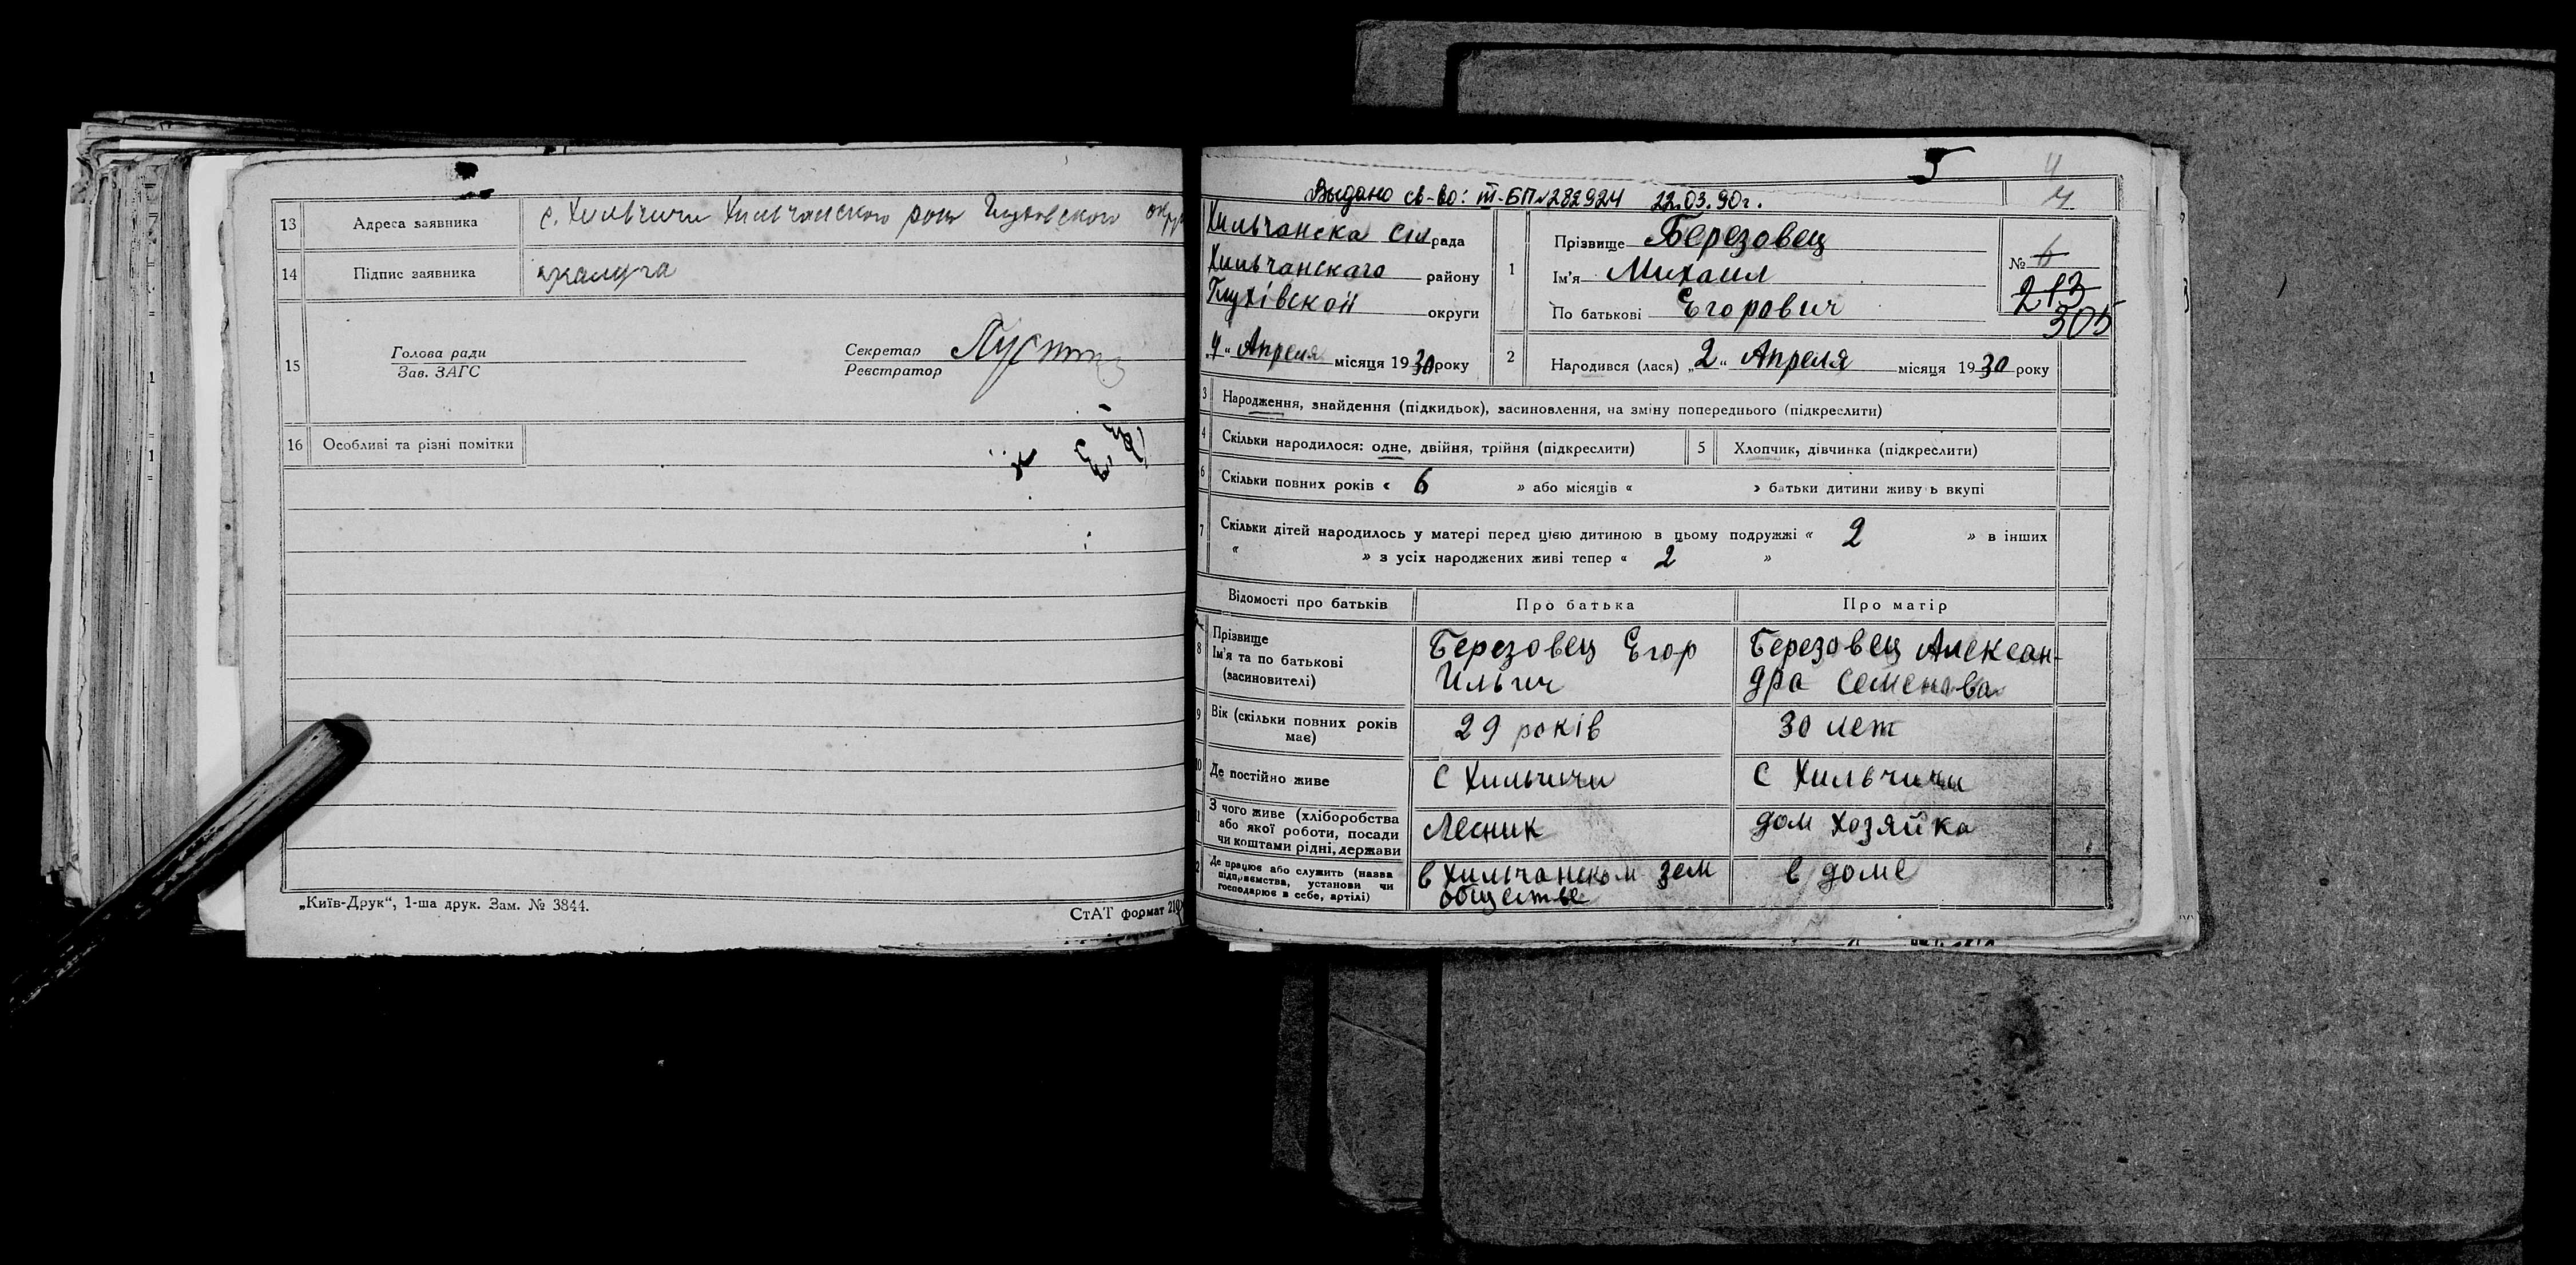 13 Адреса заявника с. Хильчичи Хильчанского рона Глуховского окру
14 Підпис заявника
15 Голова ради
Зав. ЗАГС
Секретар
Реєстратор
16 Особливі та різні помітки
„Київ-Друк“, 1-ша друк. Зам. № 3844.
СтАТ формат 210
5
4
Выдано св-во: III-БП № 282924 22.03.90г.
4
Хильчанска сілрада
Хильчанскаго району
Глухівской округи
„4“ Апреля місяця 1930 року
1 Прізвище Березовец
Ім'я Михаил
По батькові Егорович
№ 6
213
305
2 Народився (лася) „2“ Апреля місяця 1930 року
3 Народження, знайдення (підкидьок), засиновлення, на зміну попереднього (підкреслити)
4 Скільки народилося: одне, двійня, трійня (підкреслити)
5 Хлопчик, дівчинка (підкреслити)
6 Скільки повних років « 6 » або місяців « » батьки дитини живуть вкупі
7 Скільки дітей народилось у матері перед цією дитиною в цьому подружжі « 2 » в інших
« » з усіх народжених живі тепер « 2 »
Відомості про батьків Про батька Про матір
8 Прізвище
Ім'я та по батькові
(засиновителі)
Березовец Егор
Ильич
Березовец Алексан-
дра Семенова
9 Вік (скільки повних років
має)
29 років
30 лет
10 Де постійно живе
с Хильчичи
с Хильчичи
11 З чого живе (хліборобства
або якої роботи, посади
чи коштами рідні, держави
Лесник
дом хозяйка
12 Де працює або служить (назва
підприємства, установи чи
господарює в себе, артілі)
в Хильчанском зем
обществе
в доме